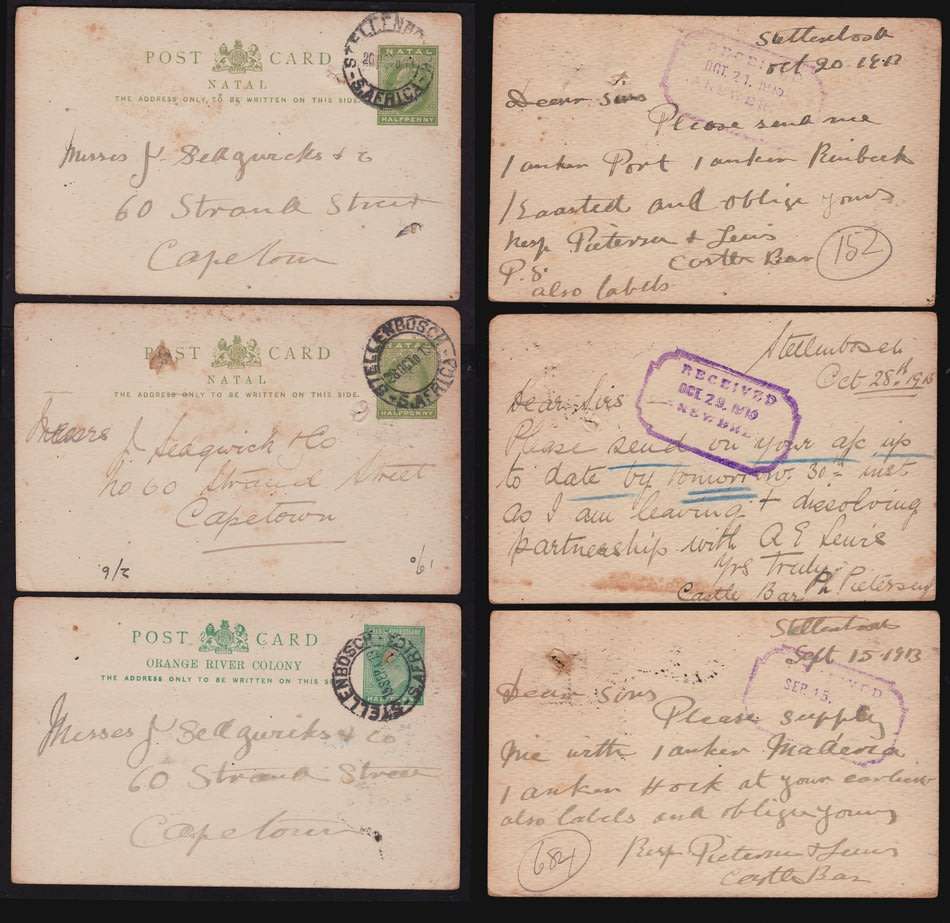 POST CARD
NATAL
THE ADDRESS ONLY TO BE WRITTEN ON THIS SIDE.
NATAL
HALFPENNY
S. AFRICA
Messrs J Sedgwicks & Co
60 Strand Street
Capetown
Stellenbosch
Oct 20 1913
RECEIVED
OCT. 21. 1910.
Dear Sirs
Please send me
1 anker Port 1 anker
1 and oblige yours
Resp Pietersen & Lewis
Castle Bar
152
P.S.
also labels
POST CARD
NATAL
THE ADDRESS ONLY TO BE WRITTEN ON THIS SIDE.
NATAL
HALFPENNY
STELLENBOSCH
S. AFRICA
Messrs J Sedgwick & Co
No 60 Strand Street
Capetown
9/2
Stellenbosch
Oct 28th 1913
RECEIVED
OCT 29. 1910
Dear Sirs
Please send on your a/c up
to date by tomorrow. 30th inst
as I am leaving & dissolving
partnership with A E Lewis
Yrs truly
Castle Bar Ph Pietersen
POST CARD
ORANGE RIVER COLONY
THE ADDRESS ONLY TO BE WRITTEN ON THIS
STELLENBOSCH
S. AFRICA
Messrs J Sedgwicks & Co
60 Strand Street
Capetown
Stellenbosch
Sept 15 1913
SEP. 15.
Dear Sirs
Please supply
me with 1 anker Maderia
1 anker Hock at your earliest
also labels and oblige yours
684
Resp Pietersen & Lewis
Castle Bar